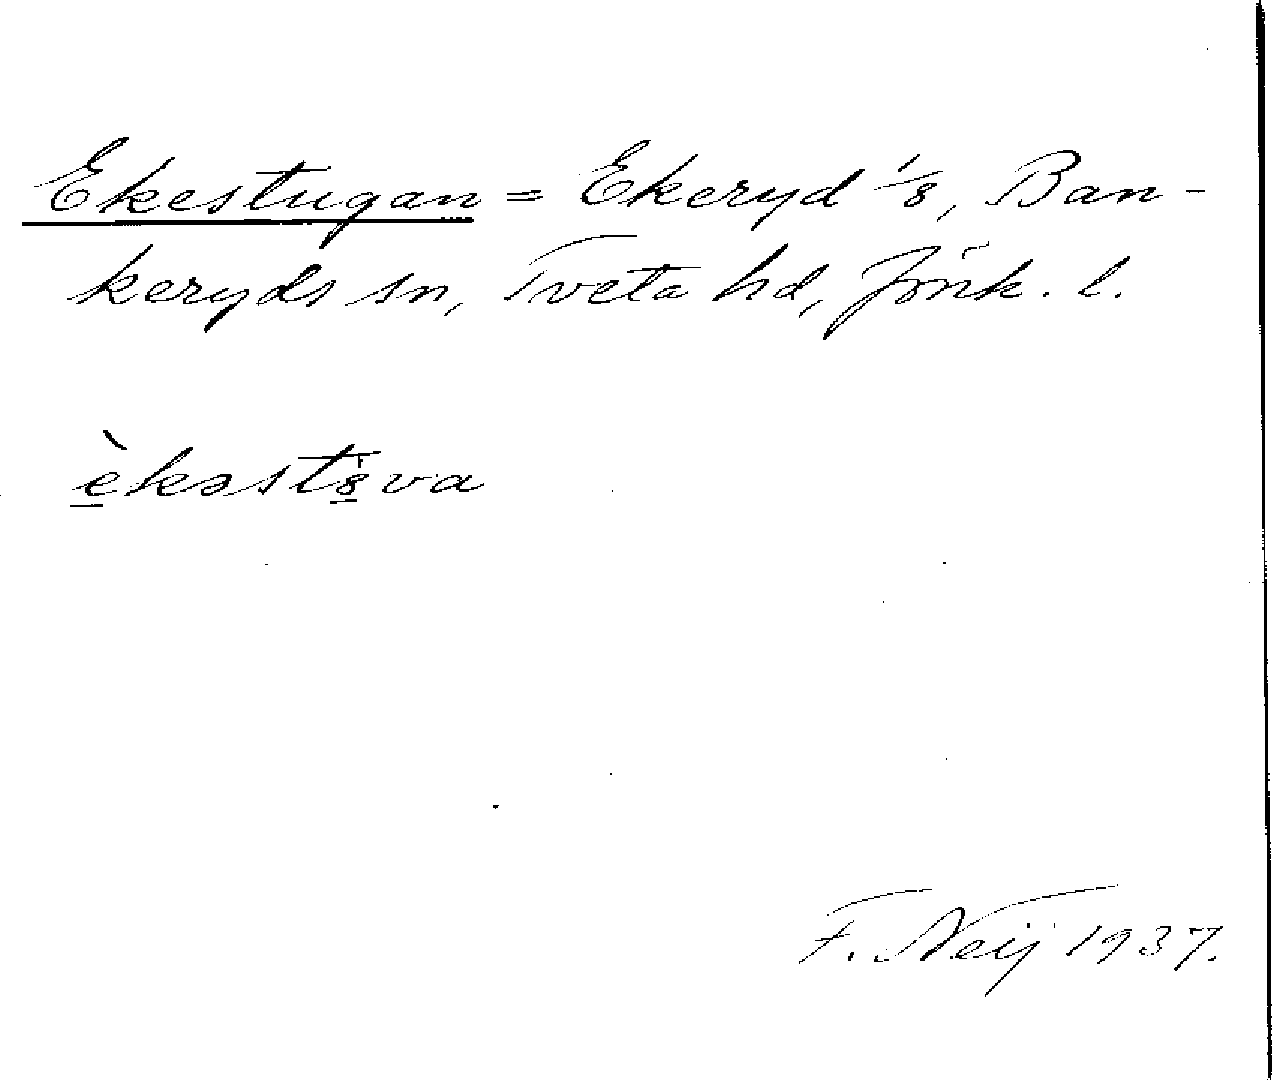 Ekestugan = Ekeryd 1/8, Ban-
keryds sn, Tveta hd, Jönk. l.
F. Neij 1937.